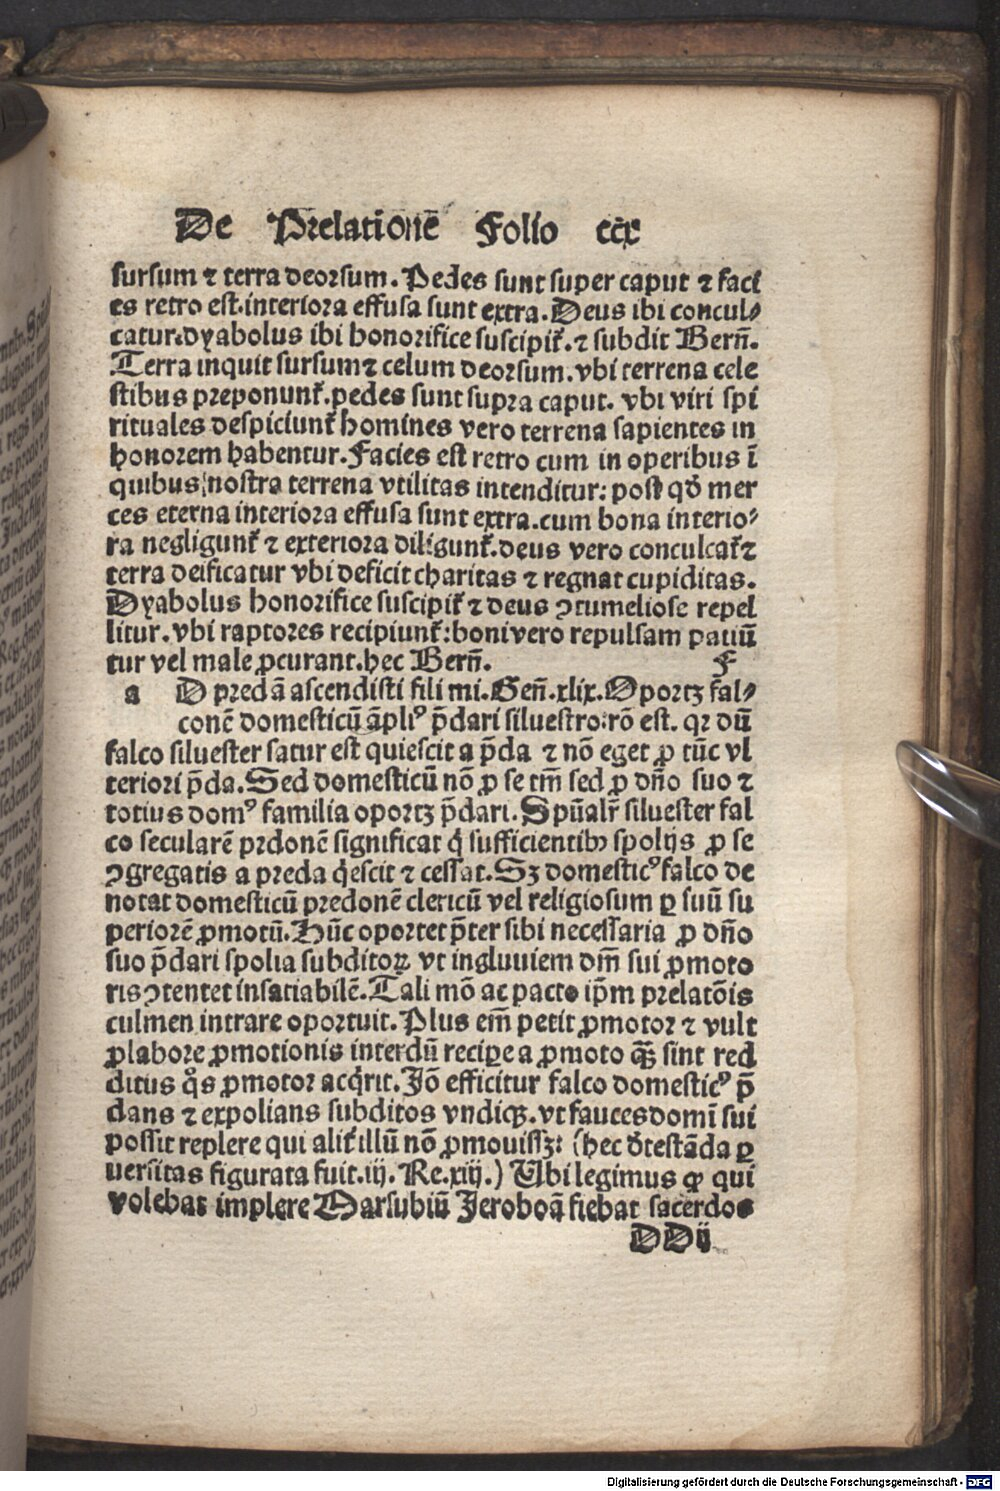 De Prelationē Folio ccx
sursum ⁊ terra deorsum. Pedes sunt super caput ⁊ faci
es retro est.interiora effusa sunt extra. Deus ibi concul⸗
catur.dyabolus ibi honorifice suscipit̃.⁊ subdit Bern̄.
Terra inquit sursum⁊ celum deorsum.vbi terrena cele
stibus preponunt̃.pedes sunt supra caput. vbi viri spi
rituales despiciunt̃ homines vero terrena sapientes in
honorem habentur.Facies est retro cum in operibus ī
quibus nostra terrena vtilitas intenditur: post qđ mer
ces eterna interiora effusa sunt extra.cum bona interio⸗
ra negligunt̃ ⁊ exteriora diligunt̃.deus vero conculcat̃⁊
terra deificatur vbi deficit charitas ⁊ regnat cupiditas.
Dyabolus honorifice suscipit̃ ⁊ deus ꝯtumeliose repel
litur.vbi raptores recipiunt̃:boni vero repulsam patiūn
tur vel male ꝓcurant.hec Bern̄. F
a D predā ascendisti fili mi.Gen̄.xlix.Oportꝫ fal⸗
conē domesticū āpliꝰ p̄dari siluestro:rō est. qꝛ dū
falco siluester satur est quiescit a p̄da ⁊ nō eget ꝓ tūc vl
teriori p̄da.Sed domesticū nō ꝓ se tm̄ sed ꝓ dn̄o suo ⁊
totius domꝰ familia oportꝫ p̄dari.Spūalr̄ siluester fal
co secularē prdonē significat q̇ sufficientibꝰ spolijs ꝓ se
ꝯgregatis a preda q̇escit ⁊ cessat.Sꝫ domesticꝰ falco de
notat domesticū predonē clericū vel religiosum ꝑ suū su
periorē ꝓmotū.Hūc oportet p̄ter sibi necessaria ꝓ dn̄o
suo p̄dari spolia subditoꝝ vt ingluuiem dn̄i sui ꝓmoto
ris ꝯtentet insatiabilē.Tali mō ac pacto ip̄m prelatōis
culmen intrare oportuit.Plus em̄ petit ꝓmotor ⁊ vult
ꝓ labore ꝓmotionis interdū recipe a ꝓmoto qͣꝫ sint red
ditus qͦs ꝓmotor acq̇rit.Jō efficitur falco domesticꝰ p̄
dans ⁊ expolians subditos vndiqꝫ.vt fauces domī sui
possit replere qui alit̃ illū nō ꝓmouissꝫ: (hec ꝺtestāda ꝑ
uersitas figurata fuit.iij. Re.xiij.) Ubi legimus ꝙ qui
volebat implere Marsubiū Jeroboā fiebat sacerdos
DD ij
Digitalisierung gefördert durch die Deutsche Forschungsgemeinschaft - DFG